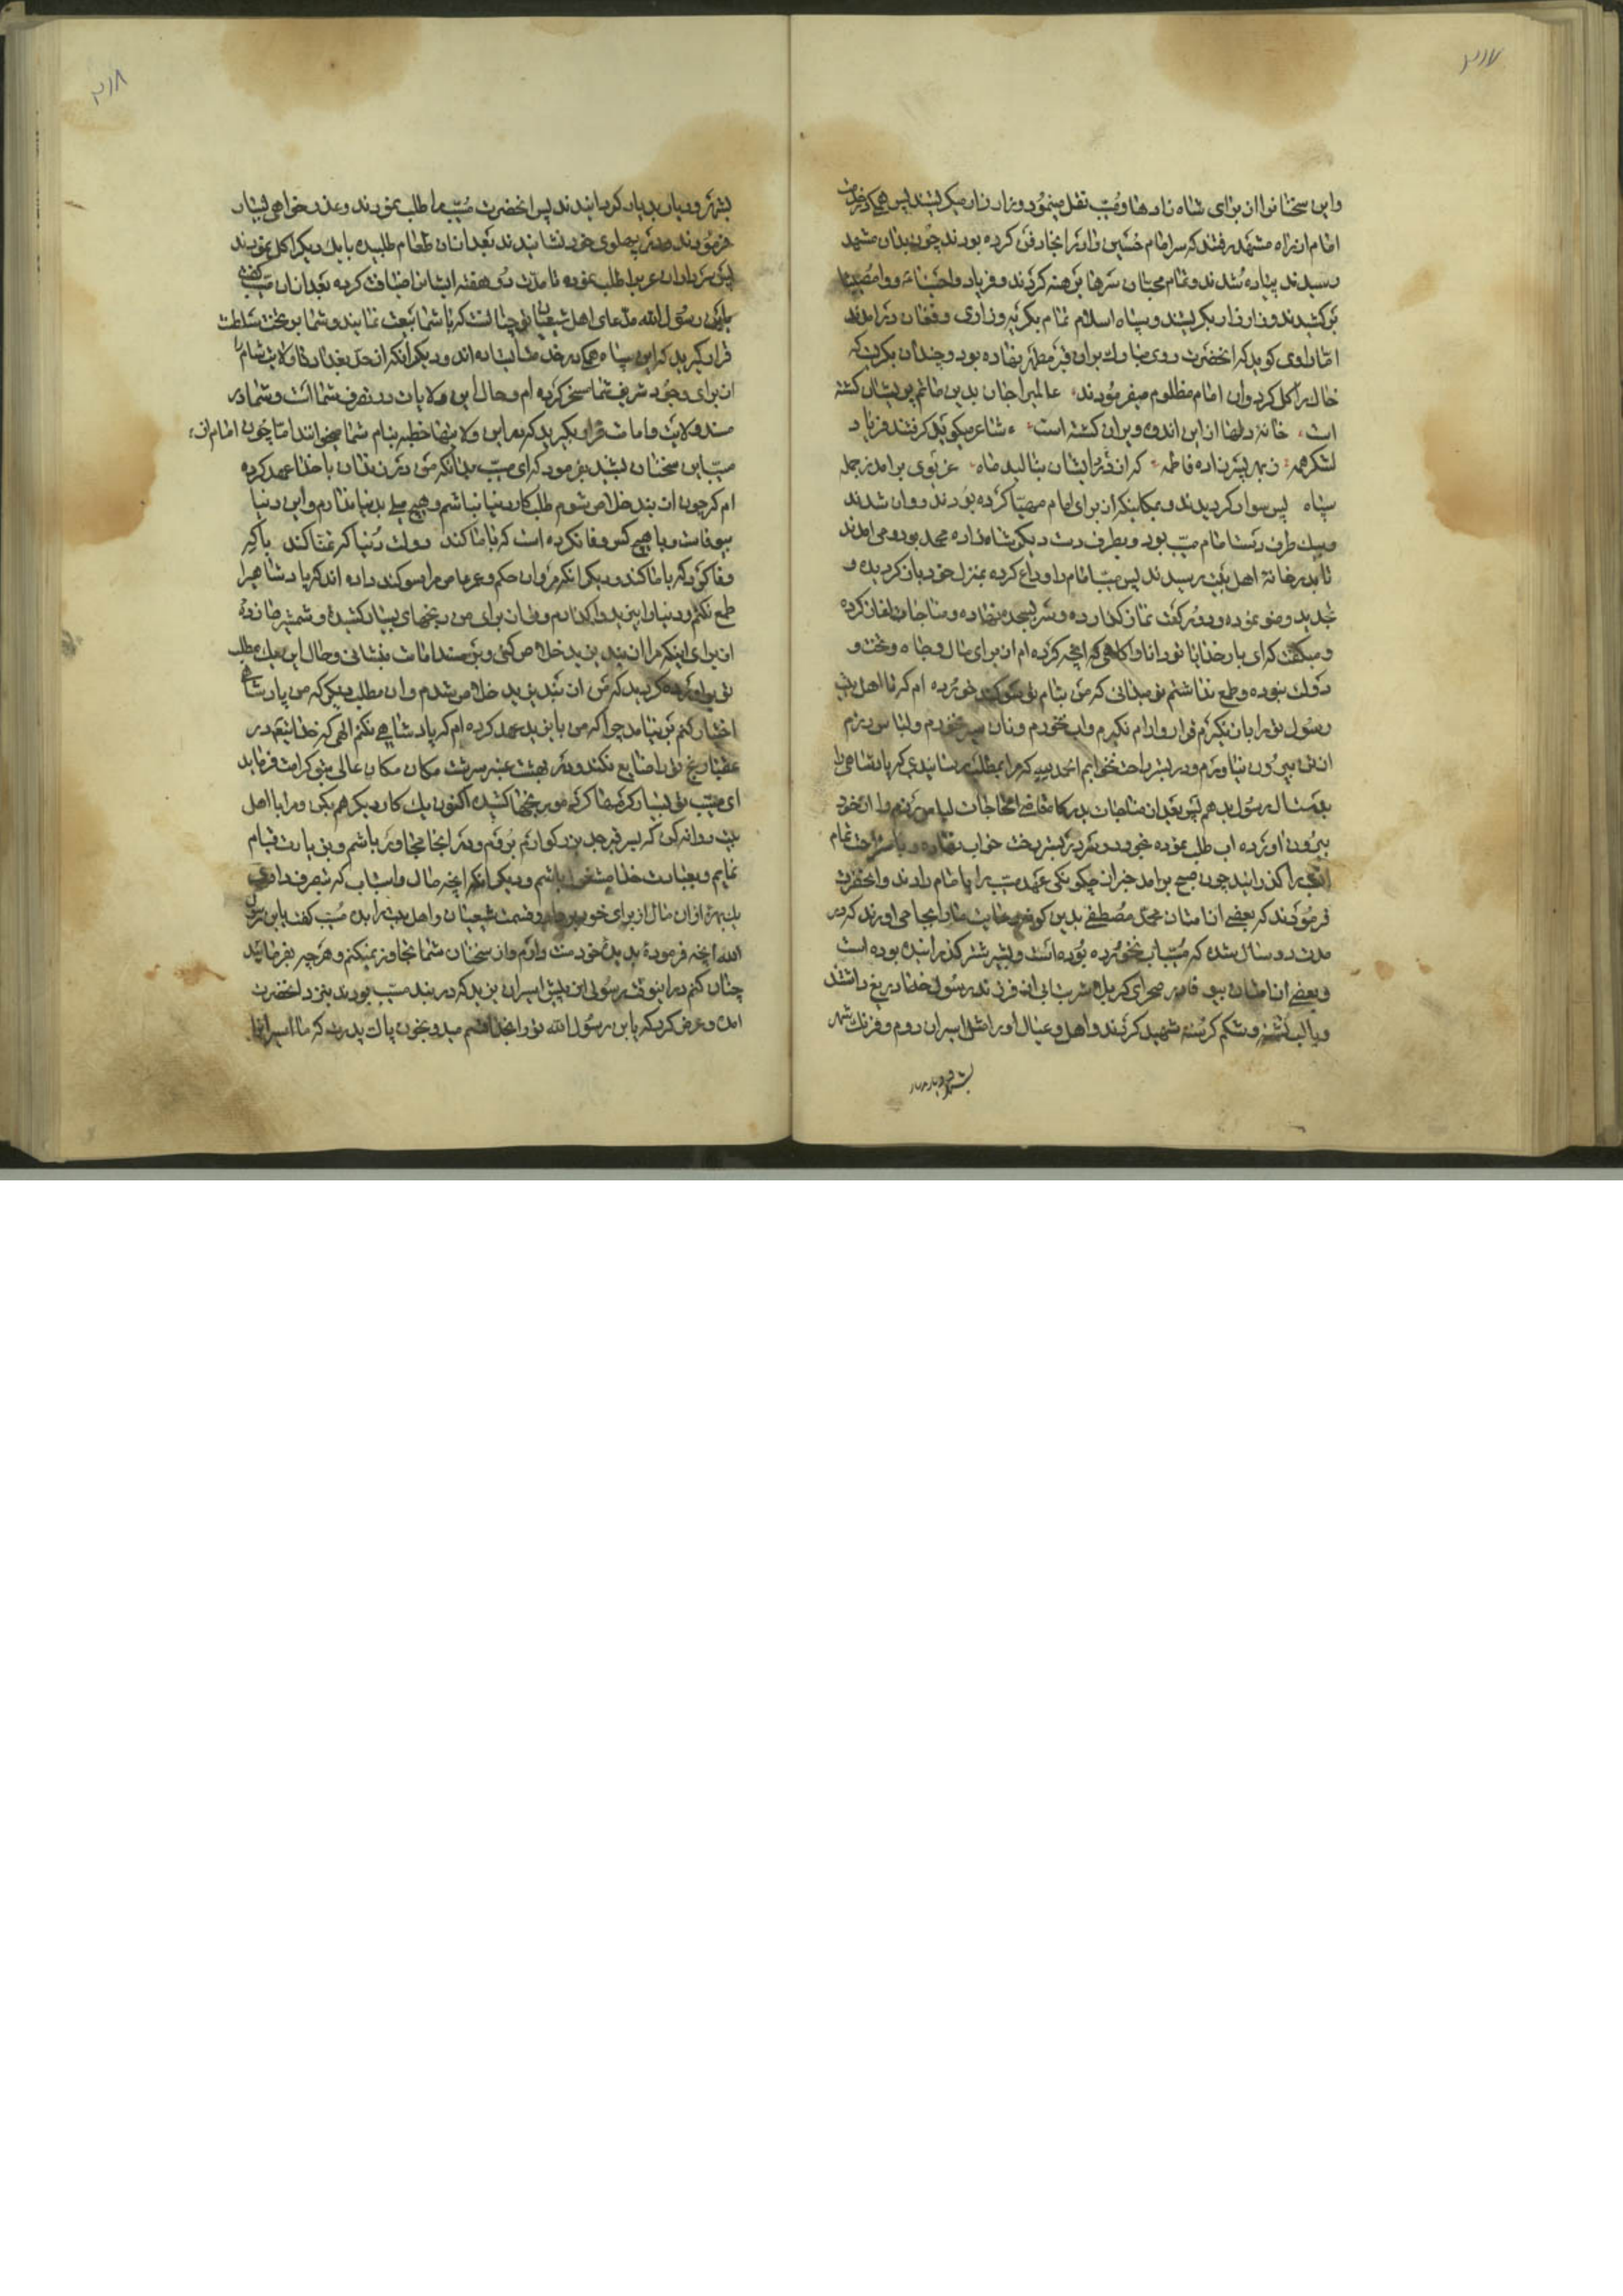 ۳۱۷
واین سخنانرا از برای شاه زادها ومُسیّب نقل مینمود و زار زار میکریستند پس همکه در خدمت
امام از راه مشهد رفتند که سر امام حُسَین را در انجا دفن کرده بودند چون بدان مشهد
رسیدند پیاده شدند وتمام محبّان سرها برهنه کردند وفریاد واحُسَیناه ووامُصیبتا
برکشیدند وزار زار بکریستند وسپاه اسلام تمام بکریه وزاری وفغان درامدند
امّا راوی کوید که انحضرت روی مبارک بران قبر مطهّر نهاده بود وچندان بکریست که
خاک را کل کرد وان امام مظلوم میفرمودند عالمیرا جان بدین ماتم پریشان کشته
است خانهٔ دلها از این اندوه ویران کشته است شاعر میکوید کرفتند فریاد
لشکر همه ز بهر پسر زاده فاطمه که از نالهٔ ایشان بنالید ماه غریوی برامد ز جمله
سپاه پس سوار کردیدند وبمکانیکه از برای امام مهیّا کرده بودند روان شدند
وبیک طرف دست امام مسیّب بود وبطرف دست دیکر شاه زاده محمد بود ومی امدند
تا بدر خانهٔ اهل بَیت رسیدند پس مسیّب امام را وداع کرده بمنزل خود باز کردیده و
تجدید وضو نموده ودو رکعت نماز کذارده وسر بسجده نهاده ومناجات اغاز کرده
ومیکفت که ای بار خدایا تو دانا واکاهی که انچه کرده ام از برای مال وجاه وتخت و
دولت نبوده وطمع نداشتم تو میدانی که من بنام تو سوکند خورده ام که تا اهل بیت
رسول تو را باز نکیرم قرار وارام نکیرم واب نخورم ونان سیر نخورم ولباس رزم
از تن بیرون نیاورم ودر بستر راحت نخوابم الحمدلله که مرا بمطلب رسانیدی که پادشاهی را
بفرزندان رسول بدهم پس بعد از مناجات بدرکاه قاضی الحاجات لباس رزم را از خود
بیرون اورده اب طلب نموده بخورد و در بستر راحت خواب نهاده وباستراحت تمام
انشب را کذرانید چون صبح برامد خبر از چکونکی عهد مسیّب را بامام دادند وانحضرت
فرمودند که بعضی از امتان محمّد مُصطفی بدین کونه رعایت ما را بجا می اورند که در
مدت دو سال شده که مُسیّب اب نخورده بوده است وبشیر شتر کذرانیده بوده است
وبعضی از امتان بیوفا در صحرای کربلا شربت ابی از فرزند رسول خدا دریغ داشتند
وبا لب تشنه وشکم کرسنه شهید کردند واهل وعیال او را مثل اسیران روم وفرنک شهر
بشهر ودیار بدیار
۳۱۸
بشهر ودیار بدیار کردانیدند پس انحضرت مُسیّب را طلب نمودند وعذر خواهی بسیار
فرمودند ودر پهلوی خود نشانیدند بعد از ان طعام طلبیده با یکدیکر اکل نمودند
پس سرداران عرب را طلب نموده تا مدت دو هفته ایشانرا ضیافت کرده بعد از ان مسیّب کفت که
یابن رسول الله مدعای اهل شیعیان انچنانست که با شما بیعت نمایند وشما بر تخت سلطنت
قرار کیرید که این سپاه همکی در خدمت ایستاده اند ودیکر انکه از حدّ بغداد تا ولایت شام را
از برای وجود شریف شما مسخر کرده ام وحال این ولایات در تصرف شما است وشما در
مسند ولایت وامامت قرار بکیرید که در این ولایتها خطبه بنام شما میخوانند امّا چون امام از
مسیّب این سخنان بشنید بفرمود که ای مسیّب بدانکه من در زندان با خدا عهد کرده
ام که چون از بند خلاص شوم طلبکار دنیا نباشم وهیچ میلی بدنیا ندارم واین دنیا
بیوفاست وبا هیچ کس وفا نکرده است که با ما کند دولت دُنیا که تمنّا کند با که
وفا کرد که با ما کند ودیکر انکه مروان حکم وعمر عاص مرا سوکند داده اند که پادشاهی را
طمع نکنم ودنیا را بیزید واکذارم وتو از برای من رنجهای بسیار کشیدهٔ وشمشیرها زدهٔ
از برای اینکه مرا از بند یزید خلاص کنی وبر مسند امامت بنشانی وحال این یک مطلب
تو براورده کردید که من از بند یزید خلاص شدم وان مطلب دیکر که من پادشاهی
اختیار کنم بر نیامد چرا که من با یزید عهد کرده ام که پادشاهی نکنم الهی که خدایتعالی در
عقبا رنج تو را ضایع نکند ودر بهشت عنبر سرشت مکان مکان عالی بتو کرامت فرماید
ای مسیّب تو بسیار کرمها کردهٔ ورنجها کشیده اکنون یک کار دیکر هم بکن ومرا با اهل
بیت روانه کن که بسر قبر جدّ بزرکوارم بروم ودر انجا مجاور باشم وبزیارت قیام
نمایم وبعبادت خدا مشغول باشم ودیکر انکه انچه مال واسباب که بتصرف دراوردی
یک بهره از ان مال از برای خود بردار وقسمت شیعیان واهل بیت را بده مُسیّب کفت یابن رسول
الله انچه فرمودهٔ بدیده خود منّت دارم واز سخنان شما تجاوز نمیکنم وهر چه بفرمائید
چنان کنم در اینوقت رسولی از پیش اسیران یزید که در بند مسیّب بودند بنزد انحضرت
امده وعرض کرد که یابن رسول الله تو را بخدا قسم میدهم بخون پاک پدرت که ما اسیرانرا